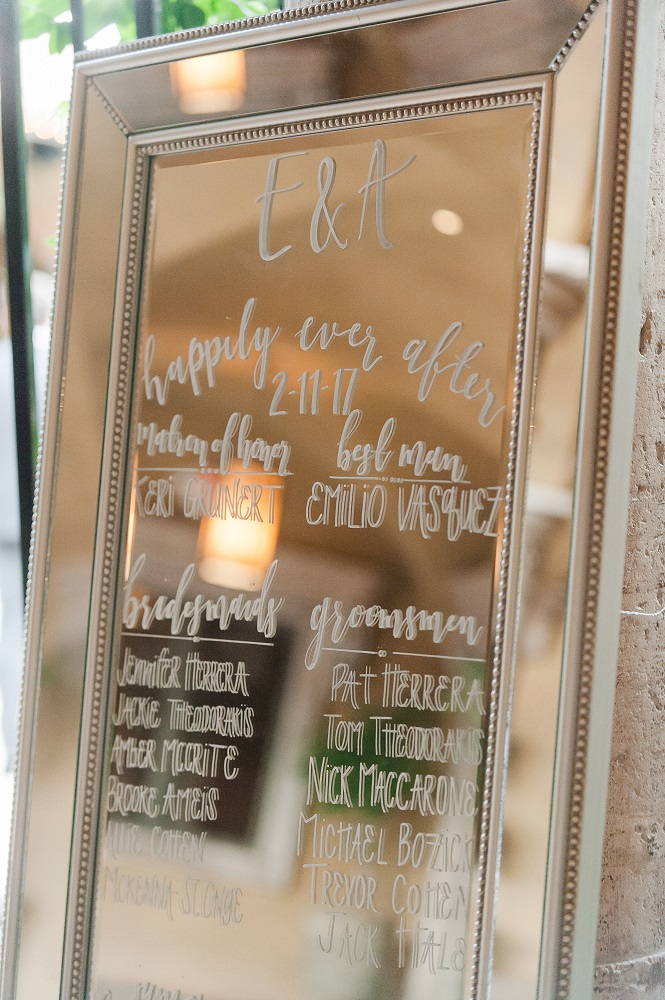 E & A
happily ever after
2-11-17
matron of honor
KERI GRUNERT
best man
EMILIO VASQUEZ
bridesmaids
JENNIFER HERRERA
JACKIE THEODORAKIS
AMBER MCCRITE
BROOKE AMEIS
COHEN
MCKENNA ST. ONGE
groomsmen
PAT HERRERA
TOM THEODORAKIS
NICK MACCARONE
MICHAEL BOZICK
TREVOR COHEN
JACK HALE